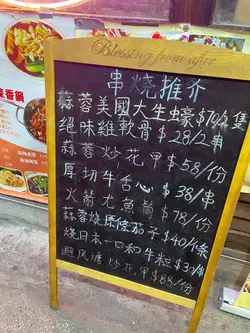 Blessing from after
串燒推介
蒜蓉美國大生蠔$70/隻
絕味雞軟骨$28/2串
蒜蓉炒花甲$58/份
厚切牛舌心$38/串
火箭尤魚筒$78/份
蒜蓉燒原條茄子$40/條
燒日本一口和牛粒$30/串
避风塘炒花甲$88/份